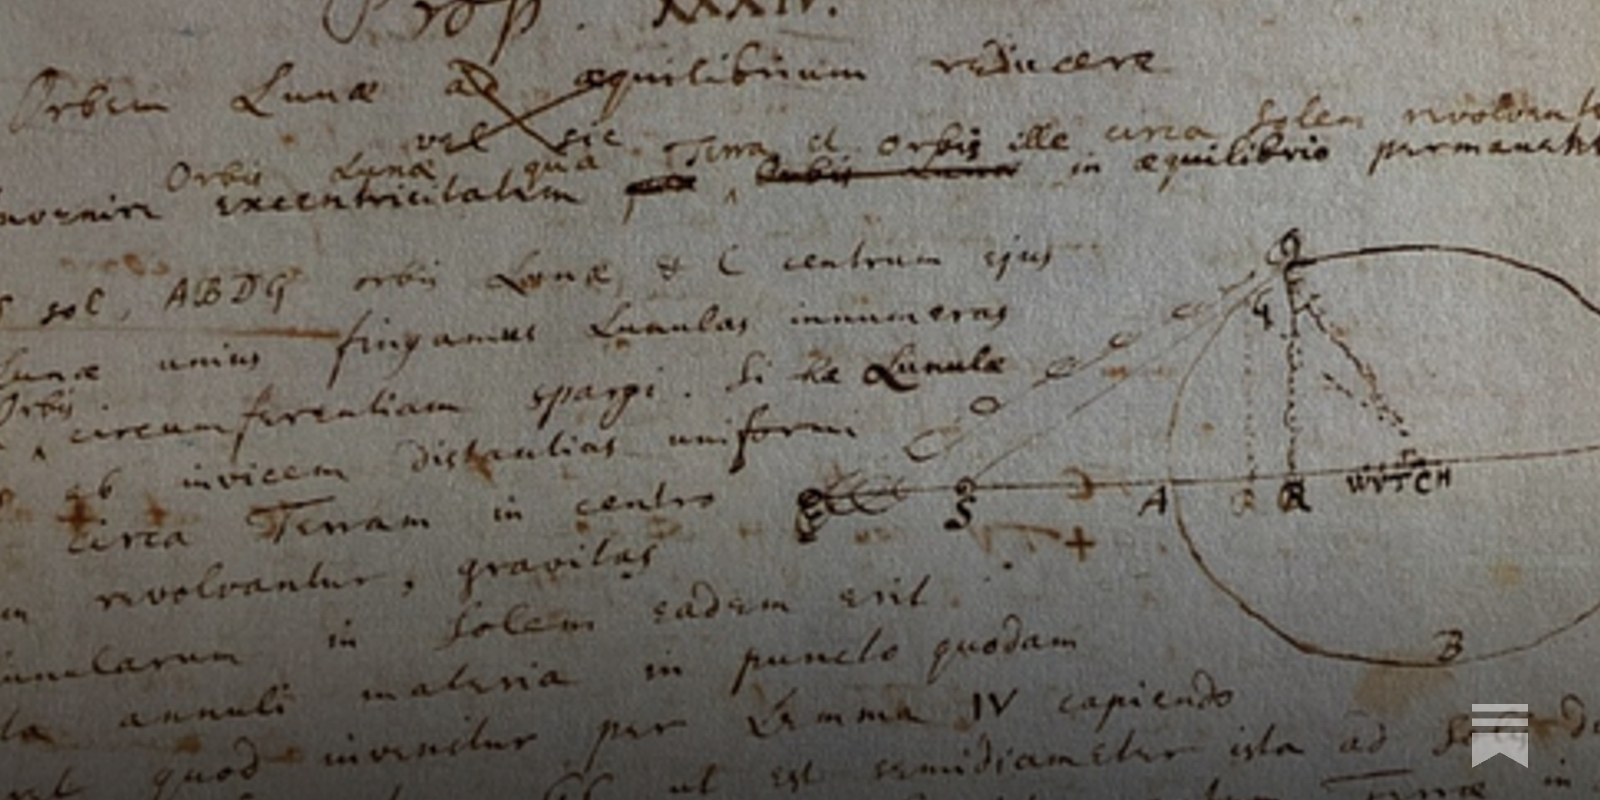 Prop. XXXIV.
Orbem Lunæ ad æquilibrium reducere
vel sic
Orbis Lunæ qua Terra et Orbis ille circa Solem revolvent
excentricitatem in æquilibrio permaneant
S sol, ABDG orbis Lunæ, & C centrum ejus
Lunæ unius fingamus Lunulas innumeras
Orbis
circumferentiam spargi. Si hæ Lunulæ
ab invicem distantias uniformi
circa Terram in centro
revolvantur, gravitas
in Solem eadem erit
annuli materia in puncto quodam
quod invenitur per Lemma IV capiendo
ut est semidiameter ista ad
G
S
A
R
R
B